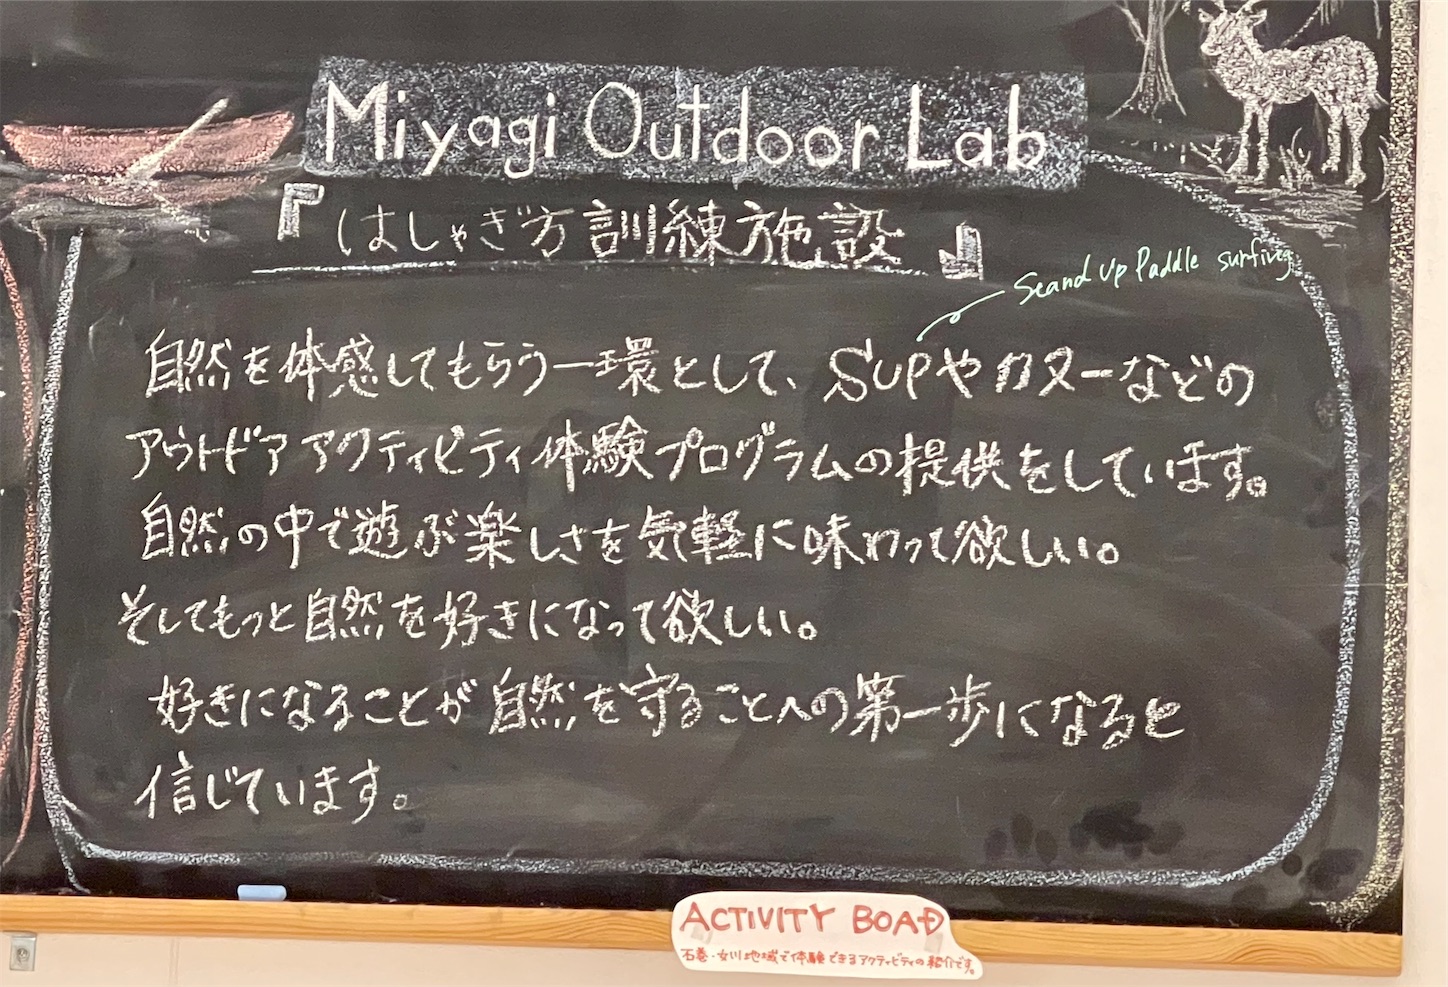 Miyagi Outdoor Lab
『はしゃぎ方訓練施設』
Stand Up Paddle surfing
自然を体感してもらう一環として、SUPやカヌーなどの
アウトドアアクティビティ体験プログラムの提供をしています。
自然の中で遊ぶ楽しさを気軽に味わって欲しい。
そしてもっと自然を好きになって欲しい。
好きになることが自然を守ることへの第一歩になると
信じています。
ACTIVITY BOAD
石巻・女川地域で体験できるアクティビティの紹介です。